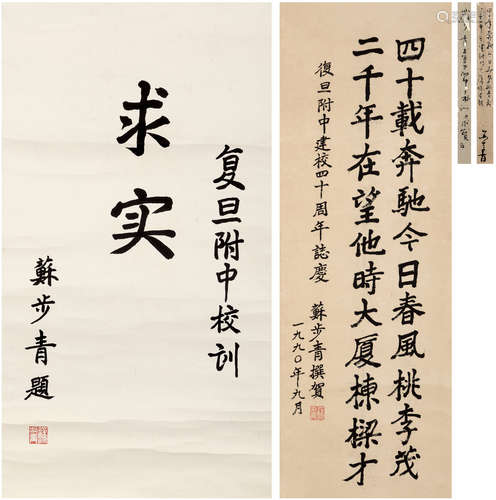 复旦附中校训
求实
蘇步青題
四十載奔馳今日春風桃李茂
二千年在望他時大厦棟樑才
復旦附中建校四十周年誌慶
蘇步青撰賀
一九九〇年九月